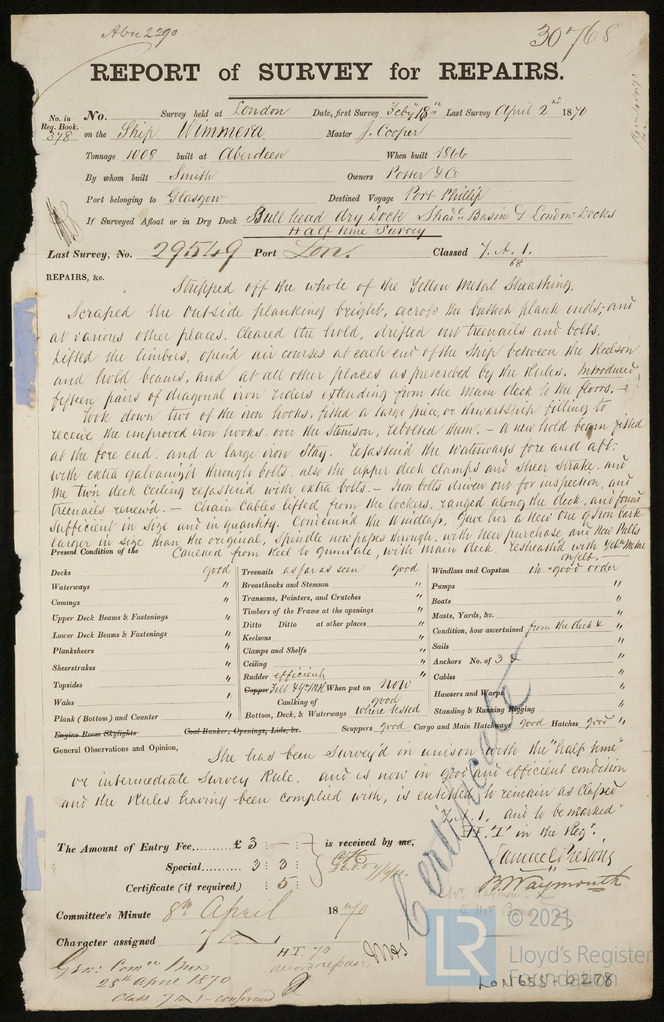 Abn 2290
30768
REPORT of SURVEY for REPAIRS.
No. in Reg. Book. 378
No. Survey held at London Date, first Survey Feby 18th Last Survey April 2nd 1870
on the Ship Wimmera Master J. Cooper
Tonnage 1008 built at Aberdeen When built 1866
By whom built Smith Owners Potter & Co
Port belonging to Glasgow Destined Voyage Port Phillip
If Surveyed Afloat or in Dry Dock Bull head dry Dock Shadl. Basin & London Docks
Half time Survey
Last Survey, No. 29549 Port Lon. Classed 7. A. 1.
68
REPAIRS, &c. Stripped off the whole of the Yellow Metal Sheathing.
Scraped the outside planking bright, across the buttock plank ends; and
at various other places. Cleared the hold, drifted out treenails and bolts.
Lifted the limbers, open'd air courses at each end of the Ship between the Keelson
and hold beams, and at all other places as prescribed by the Rules. Introduced
fifteen pairs of diagonal iron riders extending from the Main deck to the floors.
Took down two of the iron hooks, fitted a large piece, or thwartship filling to
receive the improved iron hooks over the Stemson, rebolted them. - A new hold beam fitted
at the fore end. and a large iron Stay. Refasten'd the Waterways fore and aft:
with extra galvaniz'd through bolts. also the upper deck clamps and Sheer Strake. and
the twn deck Ceiling refasten'd with extra bolts. - Iron bolts driven out for inspection, and
treenails renewd. - Chain Cables lifted from the lockers, ranged along the deck, and found
Sufficient in size and in quantity. Condemn'd the Windlass, Gave her a New one of Iron bark
larger in size than the original, Spindle now passes through, with New purchase and New Palls
Caulked from Keel to gunwale, with main deck. resheath'd with Yelw Metal
on felt.
Present Condition of the
Decks good
Waterways "
Comings "
Upper Deck Beams & Fastenings "
Lower Deck Beams & Fastenings "
Planksheers "
Sheerstrakes "
Topsides "
Wales "
Plank (Bottom) and Counter "
Engine Room Skylights
Treenails as far as seen good
Breasthooks and Stemson "
Transoms, Pointers, and Crutches "
Timbers of the Frame at the openings "
Ditto Ditto at other places "
Keelsons "
Clamps and Shelfs "
Ceiling "
Rudder efficient
Copper Felt & YM When put on Now
Caulking of Bottom, Deck, & Waterways good where tested
Coal Bunker, Openings, Lids, &c. Scuppers good Cargo and Main Hatchways good Hatches good "
Windlass and Capstan in good order
Pumps "
Boats "
Masts, Yards, &c. "
Condition, how ascertained from the deck &
Sails "
Anchors No. of 3 &
Cables "
Hawsers and Warps "
Standing & Running Rigging "
General Observations and Opinion, She has been Survey'd in unison with the "half time"
or intermediate Survey Rule. and is now in good and efficient condition
and the Rules having been complied with, is entitled to remain as Classed
7. A. 1. and to be marked
H. "T" in the Regr.
The Amount of Entry Fee... £ 3 : - :
Special... 3 : 3 :
Certificate (if required) : 5 :
is received by me,
B. Waymouth
Certificate
Committee's Minute 8th April 1870
Character assigned 7 A 1
HT 70
Genl. Comee Mem
28th April 1870
Class 7 A 1 - confirmed
LR
© 2021
Lloyd's Register
Foundation
LON655-0278